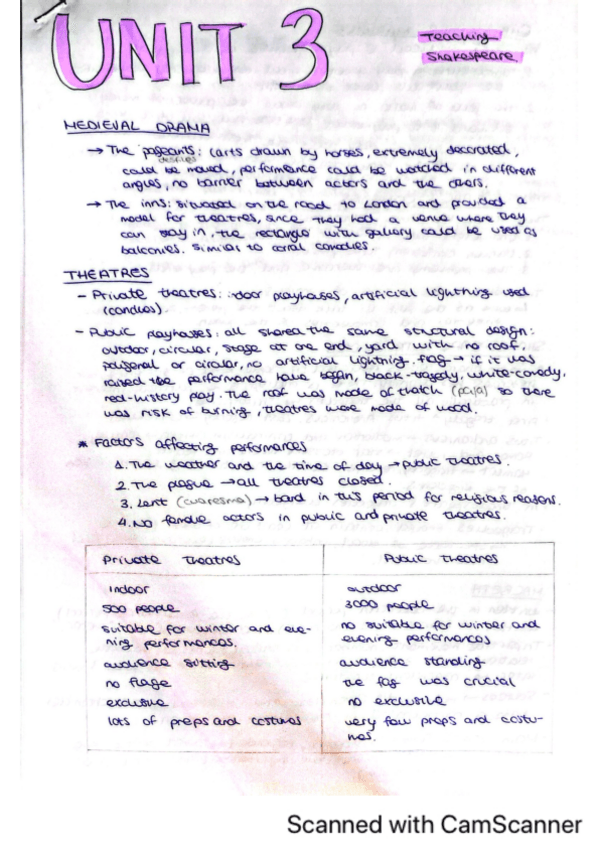 UNIT 3
Teaching
Shakespeare
MEDIEVAL DRAMA
→ The pageants: carts drawn by horses, extremely decorated,
desfiles
could be moved, performance could be watched in different
angles, no barrier between actors and the others.
→ The inns: situated on the road to London and provided a
model for theatres, since they had a venue where they
can stay in, the rectangle with gallery could be used as
balconies. Similar to corral comedies.
THEATRES
- Private theatres: indoor playhouses, artificial lightning used
(candles).
- Public playhouses: all shared the same structural design:
outdoor, circular, stage at one end, yard with no roof,
poligonal or circular, no artificial lightning. flag → if it was
raised the performance have begin, black-tragedy, white-comedy,
red-history play. The roof was made of thatch (paja) so there
was risk of burning, theatres were made of wood.
* Factors affecting performances
1. The weather and the time of day → public theatres.
2. The plague → all theatres closed.
3. Lent (cuaresma) → band in this period for religious reasons.
4. No female actors in public and private theatres.
Private theatres
Public theatres
indoor
outdoor
500 people
3000 people
suitable for winter and eve-
ning performances.
no suitable for winter and
evening performances
audience sitting
audience standing
no flags
the flag was crucial
exclusive
no exclusive
lots of props and costumes
very few props and costu-
mes.
Scanned with CamScanner